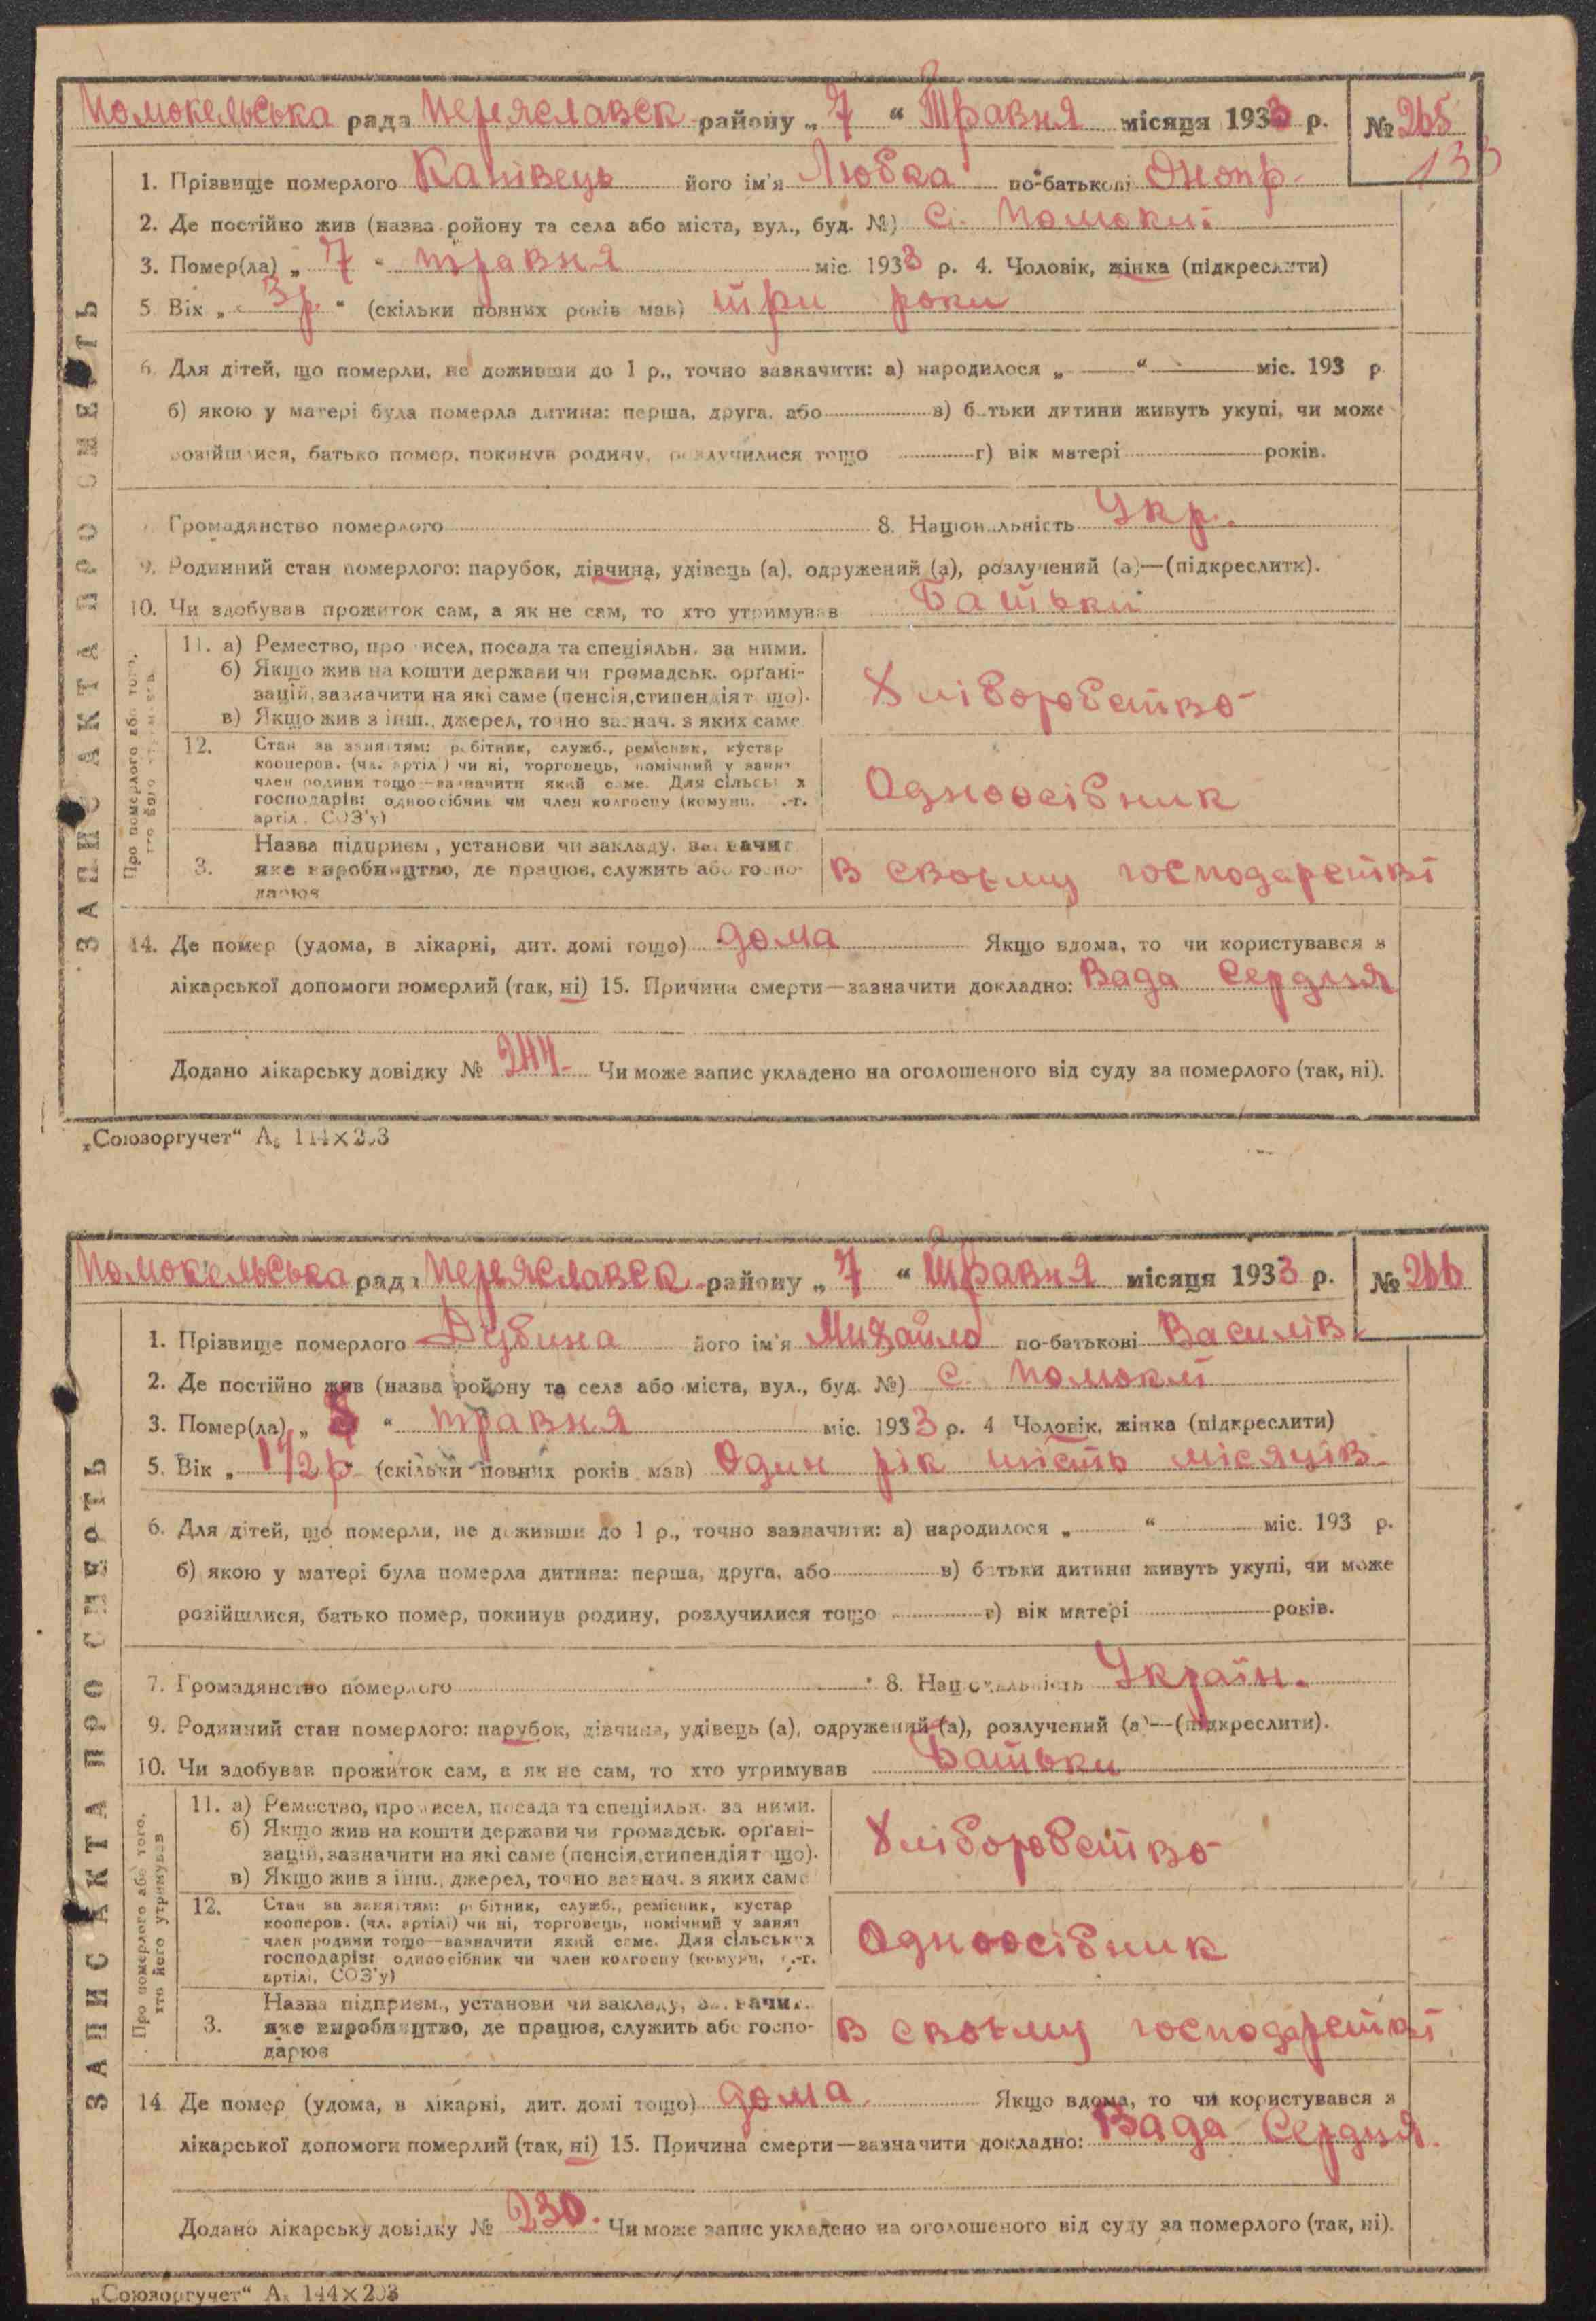 Помокельська рада Переяславск району „ 7 “ Травня місяця 1933 р. № 265
133
1. Прізвище померлого Канівець його ім'я Любка по-батькові Оноπр.
2. Де постійно жив (назва ройону та села або міста, вул., буд. №) с. Помоклі
3. Помер(ла) „ 7 “ травня міс 1933 р. 4. Чоловік, жінка (підкреслити)
5 Вік „ 3р. “ (скільки повних років мав) три роки
6. Для дітей, що померли, не доживши до 1 р., точно зазначити: а) народилося „ “ міс. 193 р
б) якою у матері була померла дитина: перша, друга, або в) батьки дитини живуть укупі, чи може
розійшлися, батько помер, покинув родину, розлучилися тощо г) вік матері років.
Громадянство померлого 8. Національність Укр.
9. Родинний стан померлого: парубок, дівчина, удівець (а), одружений (а), розлучений (а)—(підкреслити).
10. Чи здобував прожиток сам, а як не сам, то хто утримував Батьки
ЗАПИС АКТА ПРО СМЕРТЬ
Про померлого або того, хто його утримував
11. а) Ремество, промисел, посада та спеціяльн. за ними.
б) Якщо жив на кошти держави чи громадськ. орґані-
зацій, зазначити на які саме (пенсія, стипендія т що).
в) Якщо жив з інш., джерел, точно зазнач. з яких саме
Хліборобство
12. Стан за заняттям: робітник, служб., ремісник, кустар
кооперов. (чл. артілі) чи ні, торговець, помічний у занят
член родини тощо—зазначити який саме. Для сільськ х
господарів: одноосібник чи член колгоспу (комуни, с.-г.
артіл , СОЗ'у)
Одноосібник
3. Назва підприєм, установи чи закладу, зазначит
яке виробництво, де працює, служить або госпо-
дарює
в своьму господарстві
14. Де помер (удома, в лікарні, дит. домі тощо) дома Якщо вдома, то чи користувався з
лікарської допомоги померлий (так, ні) 15. Причина смерти—зазначити докладно: Вада Сердця
Додано лікарську довідку № 244. Чи може запис укладено на оголошеного від суду за померлого (так, ні).
„Союзоргучет“ А₅ 144×203
Помокельська рада Переяславск району „ 7 “ Травня місяця 1933 р. № 266
1. Прізвище померлого Дзюбина його ім'я Михайло по-батькові Василів.
2. Де постійно жив (назва ройону та села або міста, вул., буд. №) с. Помоклі
3. Помер(ла) „ 5 “ травня міс. 1933 р. 4 Чоловік, жінка (підкреслити)
5. Вік „ 1 1/2 р “ (скільки повних років мав) Один рік шість місяців
6. Для дітей, що померли, не доживши до 1 р., точно зазначити: а) народилося „ “ міс. 193 р.
б) якою у матері була померла дитина: перша, друга, або в) батьки дитини живуть укупі, чи може
розійшлися, батько помер, покинув родину, розлучилися тощо г) вік матері років.
7. Громадянство померлого 8. Національність Україн.
9. Родинний стан померлого: парубок, дівчина, удівець (а), одружений (а), розлучений (а)—(підкреслити).
10. Чи здобував прожиток сам, а як не сам, то хто утримував Батьки
ЗАПИС АКТА ПРО СМЕРТЬ
Про померлого або того, хто його утримував
11. а) Ремество, промисел, посада та спеціяльн. за ними.
б) Якщо жив на кошти держави чи громадськ. орґані-
зацій, зазначити на які саме (пенсія, стипендія т що).
в) Якщо жив з інш., джерел, точно зазнач. з яких саме
Хліборобство
12. Стан за заняттям: робітник, служб., ремісник, кустар
кооперов. (чл. артілі) чи ні, торговець, помічний у занят
член родини тощо—зазначити який саме. Для сільських
господарів: одноосібник чи член колгоспу (комуни, с.-г.
артілі, СОЗ'у)
Одноосібник
3. Назва підприєм., установи чи закладу, зазначит.
яке виробництво, де працює, служить або госпо-
дарює
в своьму господарстві
14 Де помер (удома, в лікарні, дит. домі тощо) дома Якщо вдома, то чи користувався з
лікарської допомоги померлий (так, ні) 15. Причина смерти—зазначити докладно: Вада Сердця.
Додано лікарську довідку № 230. Чи може запис укладено на оголошеного від суду за померлого (так, ні).
„Союзоргучет“ А₅ 144×203